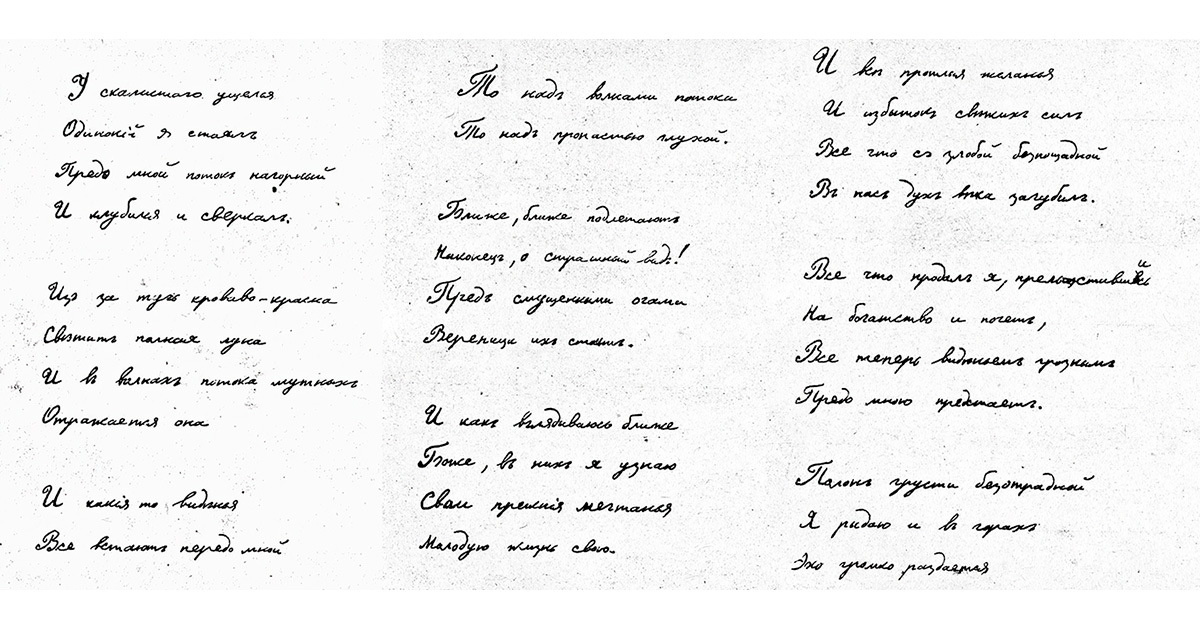 У скалистого ущелья
Одинокій я стоялъ
Предо мной потокъ нагорный
И клубился и сверкалъ.
Изъ за тучъ кроваво-красна
Свѣтитъ полная луна
И въ волнахъ потока мутныхъ
Отражается она
И какія то видѣнья
Все встаютъ передо мной
То надъ волнами потока
То надъ пропастью глухой.
Ближе, ближе подлетаютъ
Наконецъ, о страшный видъ!
Предъ смущенными очами
Вереница ихъ стоитъ.
И какъ вглядываюсь ближе
Боже, въ нихъ я узнаю
Свои прежнія мечтанья
Молодую жизнь свою.
И всѣ прошлыя желанья
И избытокъ свѣжихъ силъ
Все что съ злобой безпощадной
Въ насъ духъ вѣка загубилъ.
Все что продалъ я, прельстившись
На богатство и почетъ,
Все теперь видѣньемъ грознымъ
Предо мною предстаетъ.
Полонъ грусти безотрадной
Я рыдаю и въ горахъ
Эхо громко раздается